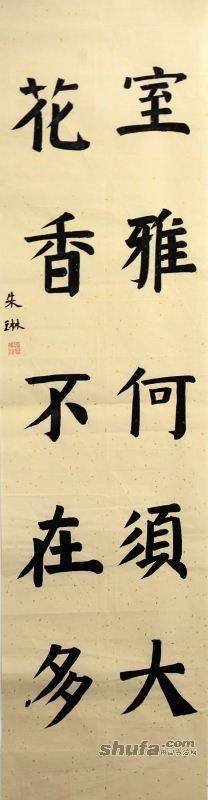 室雅何須大
花香不在多
朱琳
shufa.com